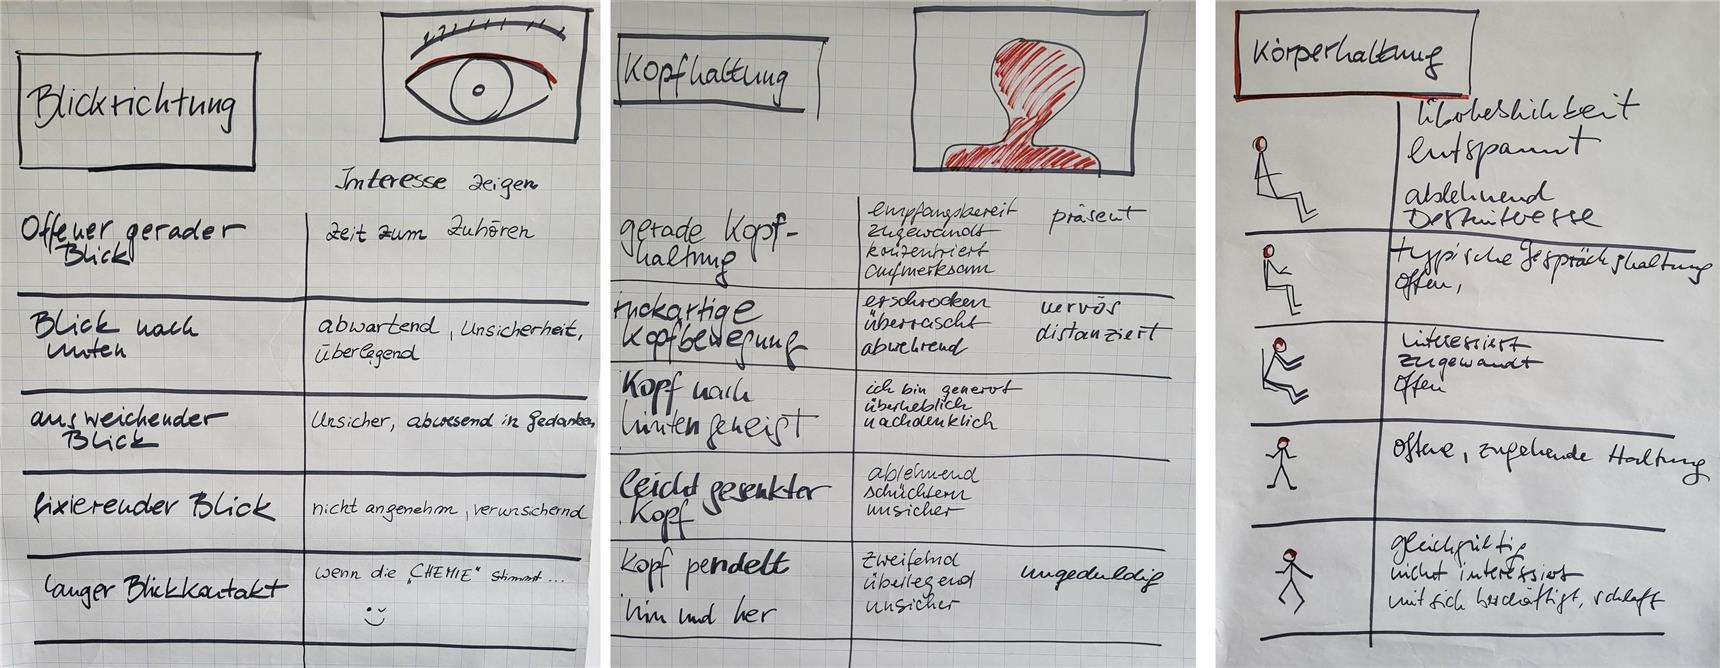 Blickrichtung
Interesse zeigen
Offener gerader
Blick
Zeit zum Zuhören
Blick nach
unten
abwartend, Unsicherheit,
überlegend
ausweichender
Blick
Unsicher, abwesend in Gedanken
fixierender Blick
nicht angenehm, verunsichernd
langer Blickkontakt
wenn die „CHEMIE" stimmt...
Kopfhaltung
gerade Kopf-
haltung
empfangsbereit
präsent
zugewandt
konzentriert
aufmerksam
ruckartige
Kopfbewegung
erschrocken
nervös
überrascht
distanziert
abwehrend
Kopf nach
hinten geneigt
ich bin genervt
überheblich
nachdenklich
leicht gesenkter
Kopf
ablehnend
schüchtern
unsicher
Kopf pendelt
hin und her
zweifelnd
überlegend
ungeduldig
unsicher
Körperhaltung
entspannt
ablehnend
Desinteresse
typische Gesprächshaltung
offen,
interessiert
zugewandt
offen
offene, zugehende Haltung
gleichgültig
nicht interessiert
mit sich beschäftigt, schlaff